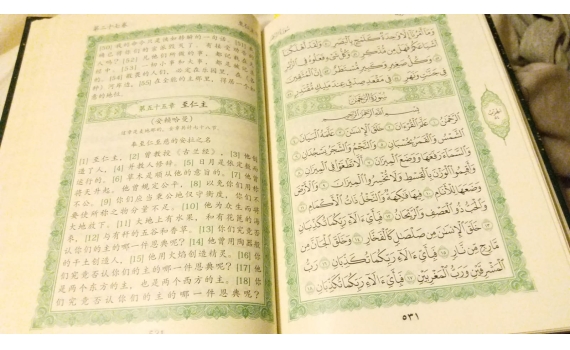 第二十七卷
[50] 我的命令只是快如转瞬的一句话。[51]
[52] 凡他们所做的事，都记录在天
经中。[53] 小事和大事，都是被记录的。
[54] 敬畏的人们，必定在乐园里，在
[55] 在全能的主那里，得居一个如
意的地位。
第五十五章 至仁主
(安赖哈曼)
这章是麦地那的，全章共计七八节
奉至仁至慈的安拉之名
[1] 至仁主，[2] 曾教授《古兰经》，[3] 他创
造了人，[4] 并教人修辞。[5] 日月是依定数而
运行的。[6] 草木是顺从他的意旨的。[7] 他曾
将天升起。他曾规定公平，[8] 以免你们用称
不公。[9] 你们应当秉公地谨守衡度，你们不
要使所称之物分量不足。[10] 他为众生而将
大地放下。[11] 大地上有水果，和有花苞的海
枣，[12] 与有秆的五谷和香草。[13] 你们究竟否
认你们的主的哪一件恩典呢？[14] 他曾用陶器般
的干土创造人，[15] 他用火焰创造精灵。[16] 你
们究竟否认你们的主的哪一件恩典呢？[17] 他
是两个东方的主，也是两个西方的主。[18] 你
们究竟否认你们的主的哪一件恩典呢？
وَمَا أَمْرُنَا إِلَّا وَاحِدَةٌ كَلَمْحٍ بِالْبَصَرِ ٥٠ وَلَقَدْ أَهْلَكْنَا
أَشْيَاعَكُمْ فَهَلْ مِن مُّدَّكِرٍ ٥١ وَكُلُّ شَيْءٍ فَعَلُوهُ فِي الزُّبُرِ
٥٢ وَكُلُّ صَغِيرٍ وَكَبِيرٍ مُّسْتَطَرٌ ٥٣ إِنَّ الْمُتَّقِينَ
فِي جَنَّاتٍ وَنَهَرٍ ٥٤ فِي مَقْعَدِ صِدْقٍ عِندَ مَلِيكٍ مُّقْتَدِرٍ ٥٥
سُورَةُ الرَّحْمَٰنِ
بِسْمِ اللَّهِ الرَّحْمَٰنِ الرَّحِيمِ
الرَّحْمَٰنُ ١ عَلَّمَ الْقُرْآنَ ٢ خَلَقَ الْإِنسَانَ ٣ عَلَّمَهُ الْبَيَانَ ٤
الشَّمْسُ وَالْقَمَرُ بِحُسْبَانٍ ٥ وَالنَّجْمُ وَالشَّجَرُ يَسْجُدَانِ ٦
وَالسَّمَاءَ رَفَعَهَا وَوَضَعَ الْمِيزَانَ ٧ أَلَّا تَطْغَوْا فِي الْمِيزَانِ ٨
وَأَقِيمُوا الْوَزْنَ بِالْقِسْطِ وَلَا تُخْسِرُوا الْمِيزَانَ ٩ وَالْأَرْضَ
وَضَعَهَا لِلْأَنَامِ ١٠ فِيهَا فَاكِهَةٌ وَالنَّخْلُ ذَاتُ الْأَكْمَامِ ١١
وَالْحَبُّ ذُو الْعَصْفِ وَالرَّيْحَانُ ١٢ فَبِأَيِّ آلَاءِ رَبِّكُمَا تُكَذِّبَانِ ١٣
خَلَقَ الْإِنسَانَ مِن صَلْصَالٍ كَالْفَخَّارِ ١٤ وَخَلَقَ الْجَانَّ مِن
مَّارِجٍ مِّن نَّارٍ ١٥ فَبِأَيِّ آلَاءِ رَبِّكُمَا تُكَذِّبَانِ ١٦ رَبُّ
الْمَشْرِقَيْنِ وَرَبُّ الْمَغْرِبَيْنِ ١٧ فَبِأَيِّ آلَاءِ رَبِّكُمَا تُكَذِّبَانِ ١٨
٥٣١